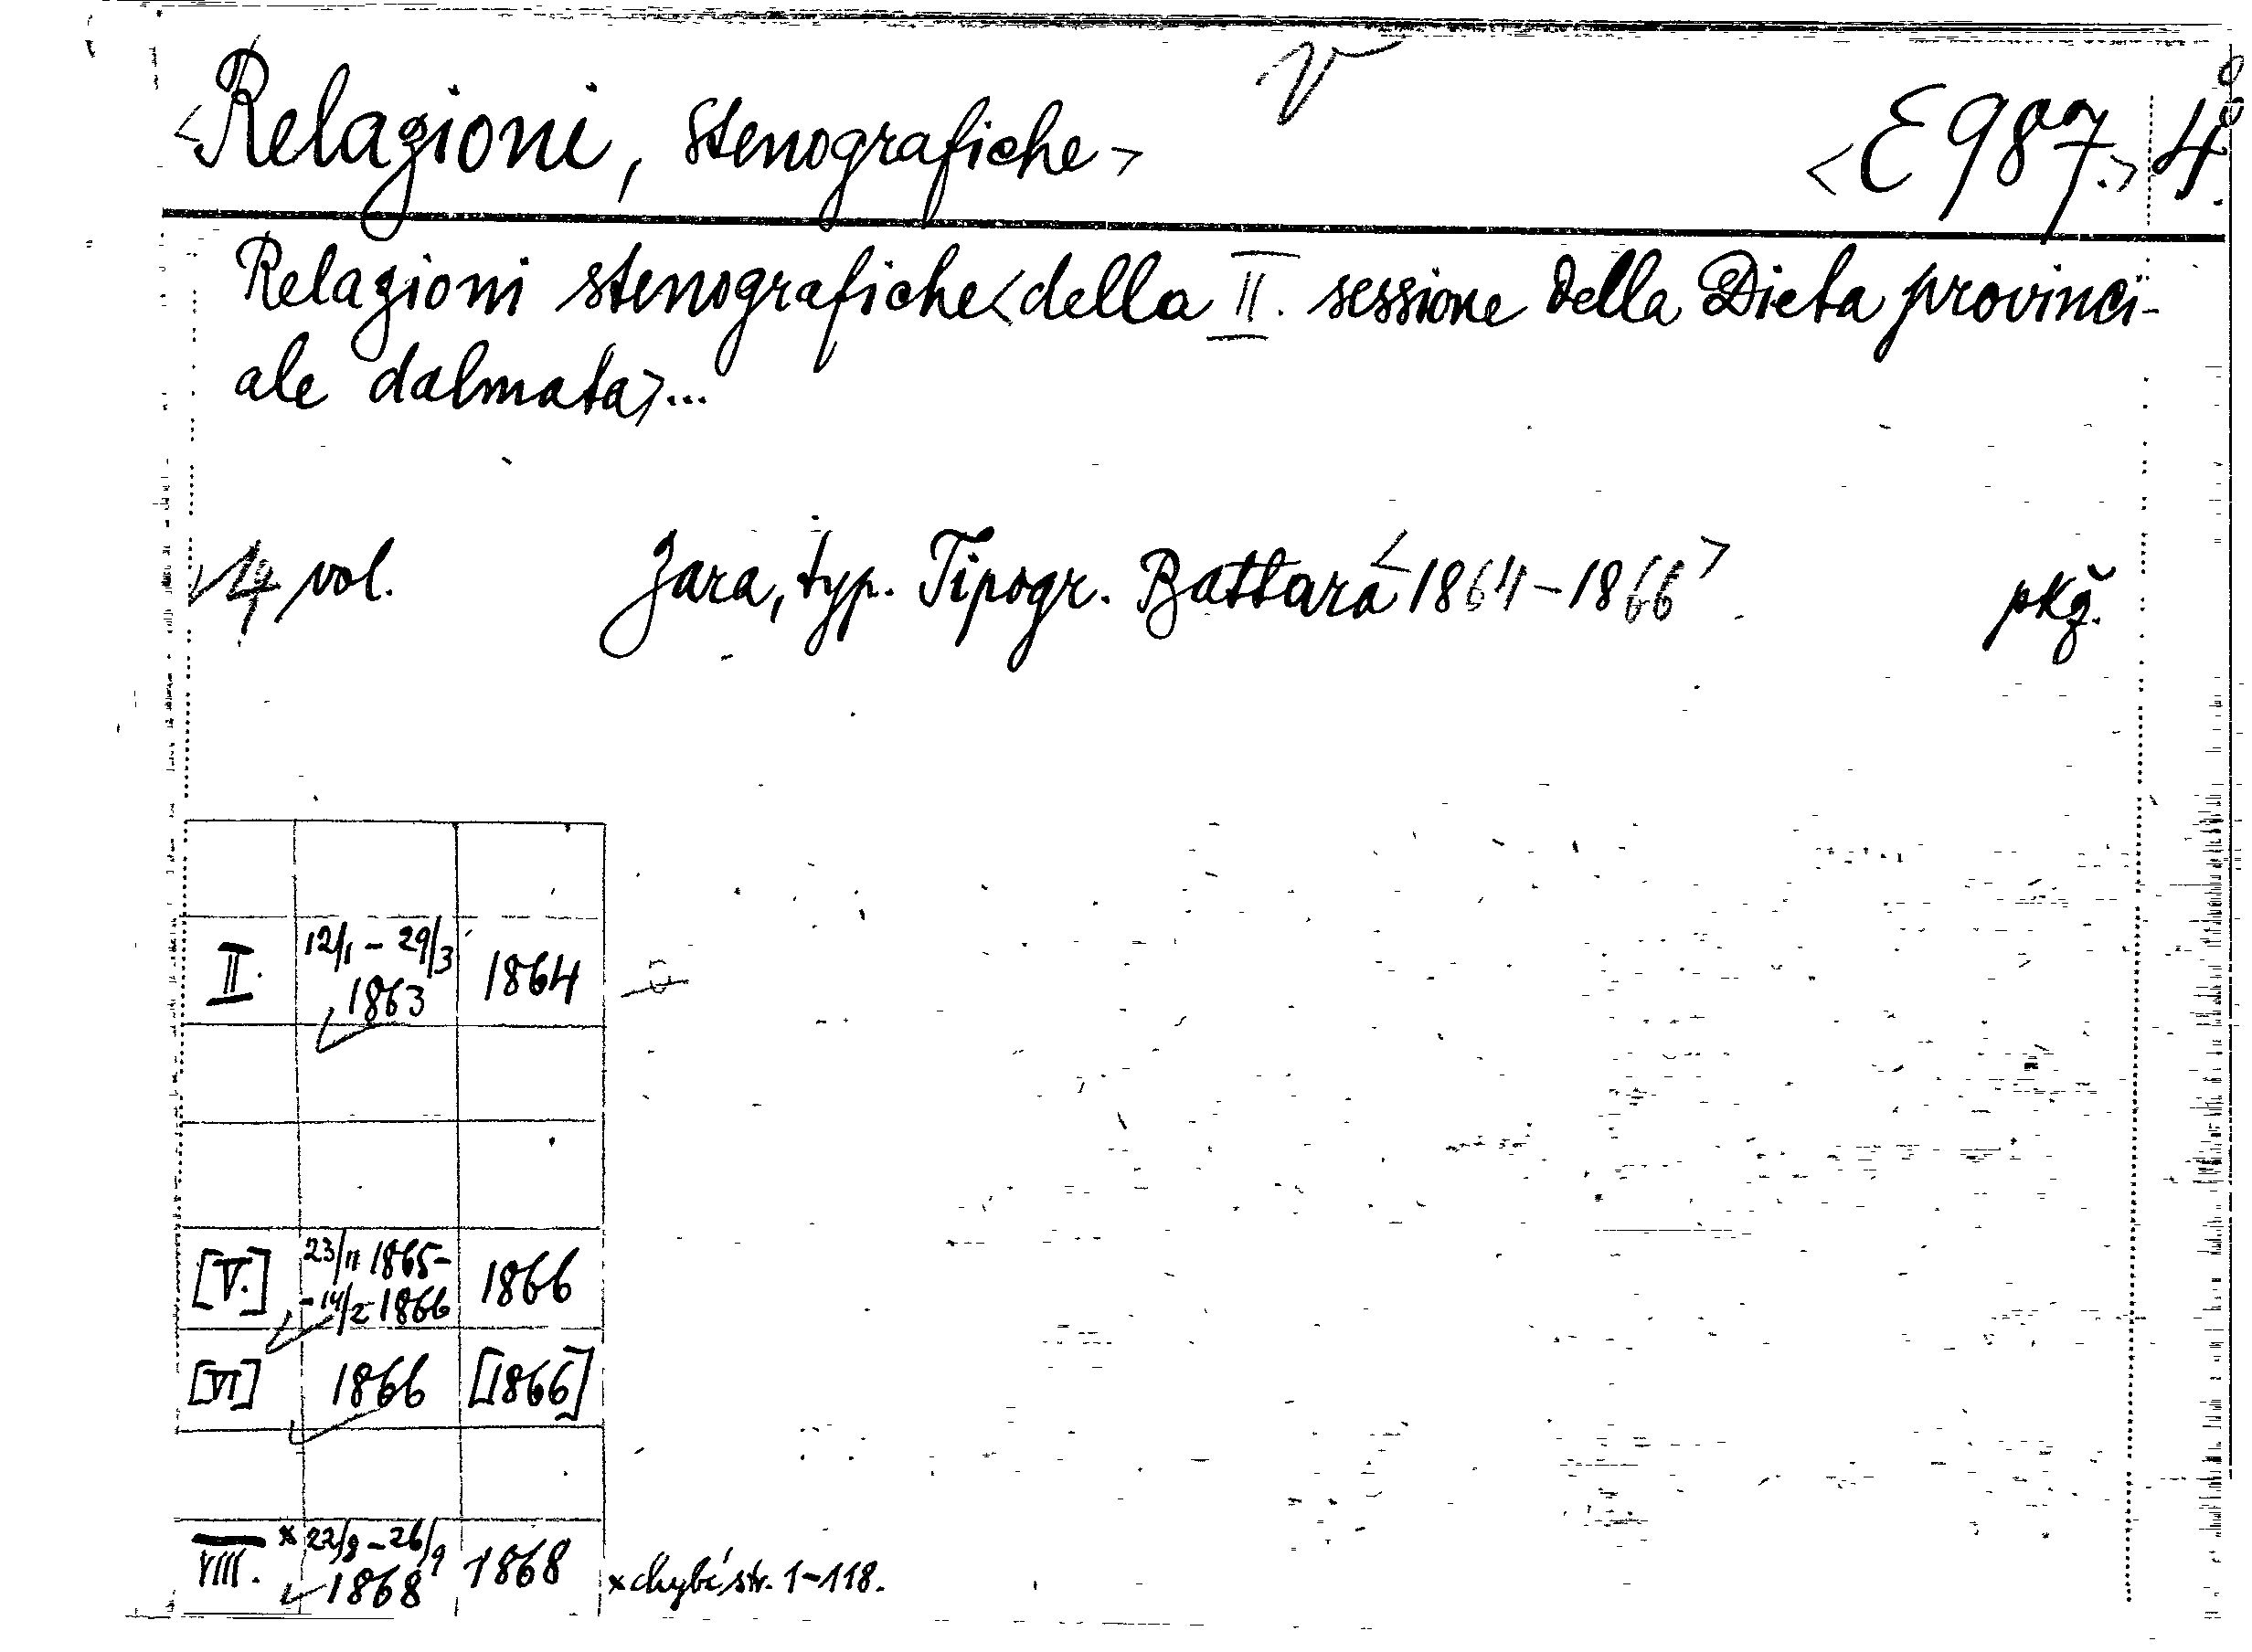 <Relazioni, stenografiche> <E 987.> 4°.
Relazioni stenografiche <della II. sessione della Dieta provinci-
ale dalmata> ...
4 vol. Zara, typ. Tipogr. Battara <1864-1866> pkž.
II. 12/1 - 29/3 1863 1864
[V.] 23/11 1865- -14/2 1866 1866
[VI] 1866 [1866]
VIII. x 22/8 - 26/9 1868 1868 x chybí str. 1-118.